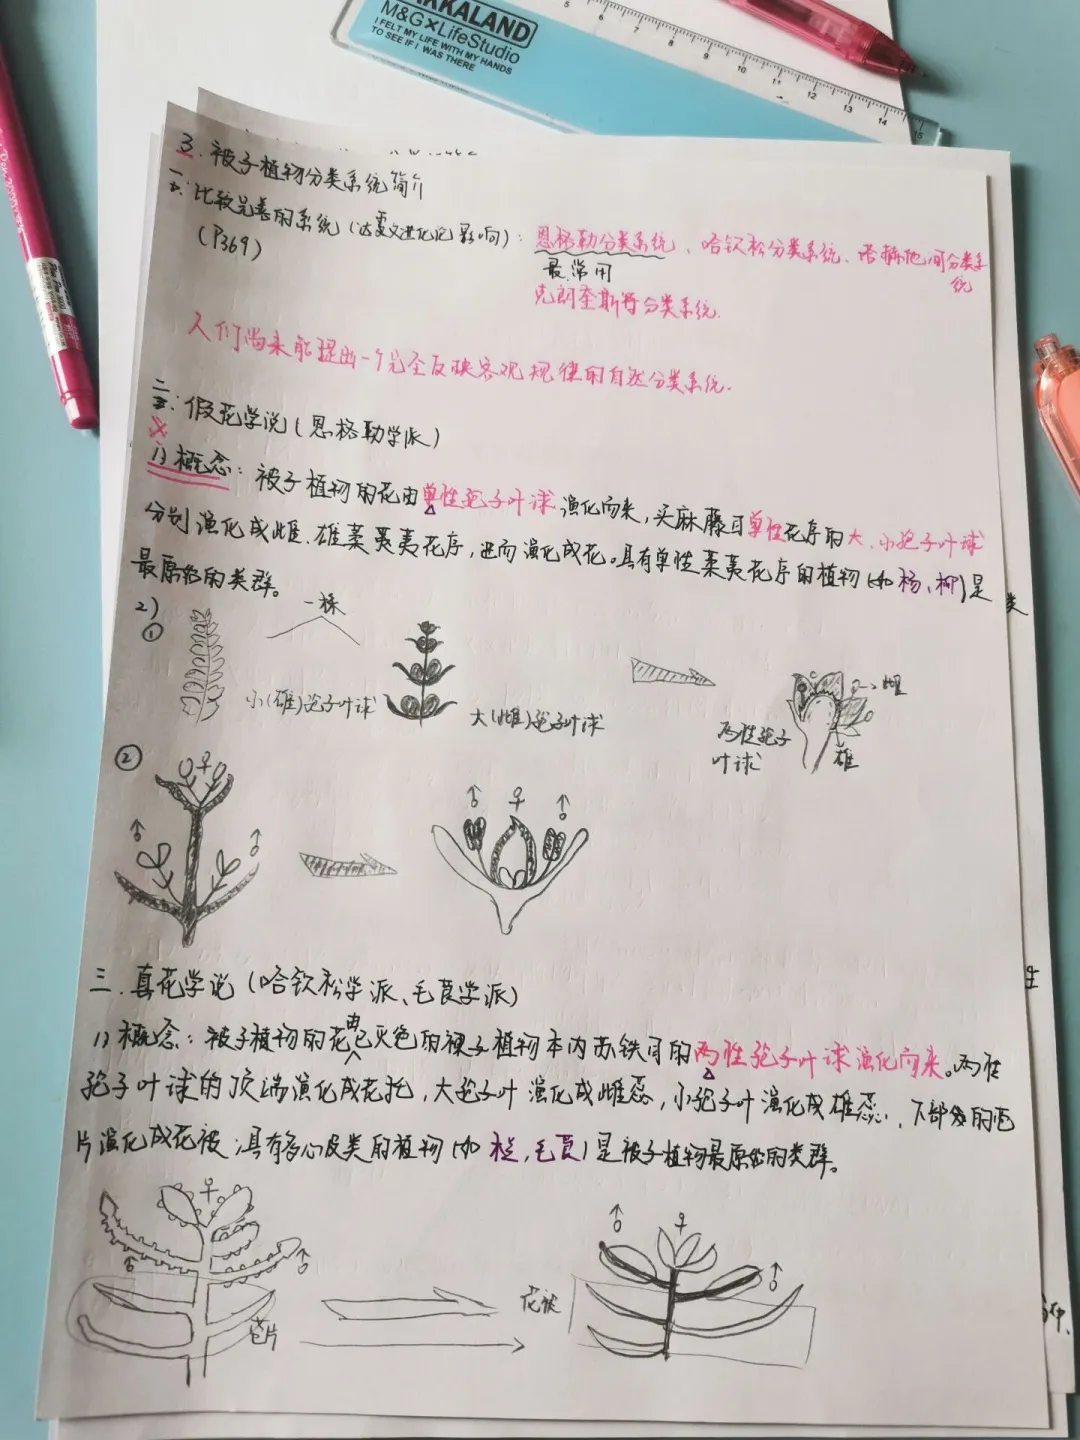 ARKALAND
M&G×LifeStudio
I FELT MY LIFE WITH MY HANDS
TO SEE IF I WAS THERE
5 6 7 8 9 10 11 12 13 14 15
3. 被子植物分类系统简介
一. 比较完善的系统(达尔文进化论影响): 恩格勒分类系统、哈钦松分类系统、塔赫他间分类系统
(P369)
最常用
克朗奎斯特分类系统.
人们尚未能提出一个完全反映客观规律的自然分类系统.
二. 假花学说(恩格勒学派)
1) 概念: 被子植物的花由单性孢子叶球演化而来,买麻藤目单性花序的大、小孢子叶球
分别演化成雌、雄葇荑花序,进而演化成花。具有单性葇荑花序的植物(如杨、柳)是
最原始的类群。
类
2)
① 一株
小(雄)孢子叶球
大(雌)孢子叶球
两性孢子
叶球
雌
雄
②
♀
♂ ♂
♂ ♀ ♂
三. 真花学说(哈钦松学派、毛茛学派)
1) 概念: 被子植物的花由已灭绝的裸子植物本内苏铁目的两性孢子叶球演化而来。两性
孢子叶球的顶端演化成花托,大孢子叶演化成雌蕊,小孢子叶演化成雄蕊,下部的苞
片演化成花被;具有多心皮类的植物(如 ,毛茛)是被子植物最原始的类群。
♀
♂ ♂
苞片
花被
♂ ♀ ♂